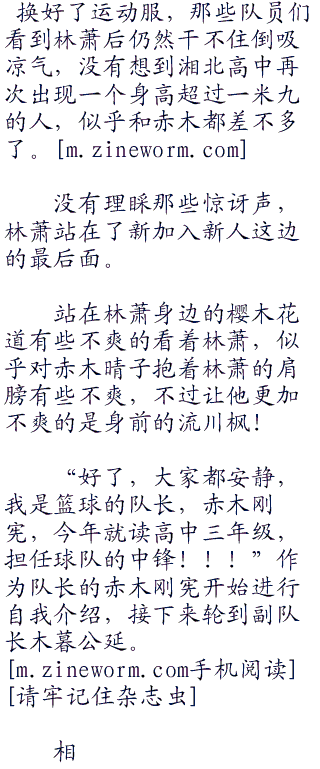 换好了运动服，那些队员们
看到林萧后仍然干不住倒吸
凉气，没有想到湘北高中再
次出现一个身高超过一米九
的人，似乎和赤木都差不多
了。[m.zineworm.com]
没有理睬那些惊讶声，
林萧站在了新加入新人这边
的最后面。
站在林萧身边的樱木花
道有些不爽的看着林萧，似
乎对赤木晴子抱着林萧的肩
膀有些不爽，不过让他更加
不爽的是身前的流川枫！
“好了，大家都安静，
我是篮球的队长，赤木刚
宪，今年就读高中三年级，
担任球队的中锋！！！”作
为队长的赤木刚宪开始进行
自我介绍，接下来轮到副队
长木暮公延。
[m.zineworm.com手机阅读]
[请牢记住杂志虫]
相